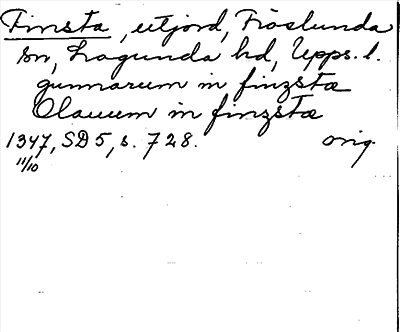 Finsta, utjord, Fröslunda
sn, Lagunda hd, Upps. l.
gunnarum in finzsta
Olauum in finzsta
1347, SD 5, s. 728. orig.
11/10